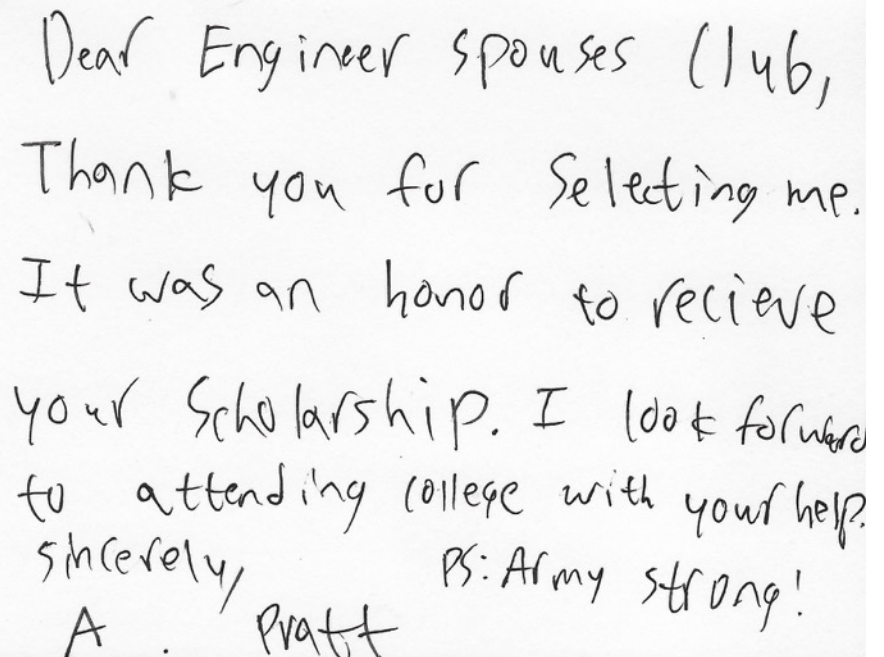 Dear Engineer spouses Club,
Thank you for Selecting me.
It was an honor to recieve
your Scholarship. I look forward
to attending college with your help.
sincerely, PS: Army strong!
A. Pratt